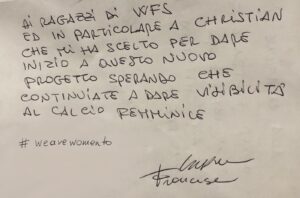 AI RAGAZZI DI WFS
ED IN PARTICOLARE A CHRISTIAN
CHE MI HA SCELTO PER DARE
INIZIO A QUESTO NUOVO
PROGETTO SPERANDO CHE
CONTINUIATE A DARE VISIBILITÀ
AL CALCIO FEMMINILE
# wearewomento